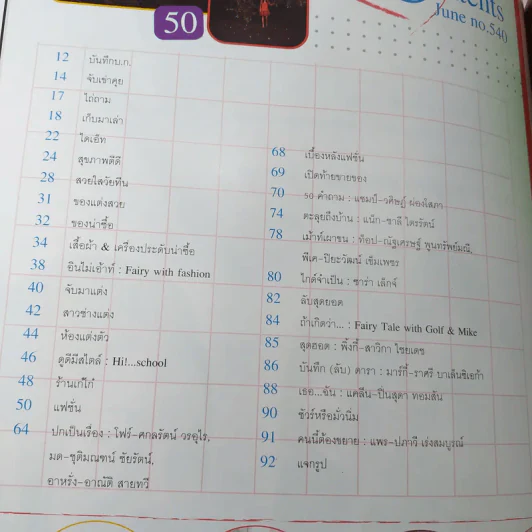 50
ents
June no.540
12 บันทึกบ.ก.
14 จับเข่าคุย
17 ไถ่ถาม
18 เก็บมาเล่า
22 ไดเอ็ท
24 สุขภาพดีดี
28 สวยใสวัยทีน
31 ของแต่งสวย
32 ของน่าซื้อ
34 เสื้อผ้า & เครื่องประดับน่าซื้อ
38 อินไม่เอ้าท์ : Fairy with fashion
40 จับมาแต่ง
42 สาวช่างแต่ง
44 ห้องแต่งตัว
46 ดูดีมีสไตล์ : Hi!...school
48 ร้านเก๋ไก๋
50 แฟชั่น
64 ปกเป็นเรื่อง : โฟร์-ศกลรัตน์ วรอุไร,
มด-ชุติมณฑน์ ชัยรัตน์,
อาหรั่ง-อาณัติ สายทวี
68 เบื้องหลังแฟชั่น
69 เปิดท้ายขายของ
70 50 คำถาม : แชมป์-วศิษฏ์ ผ่องโสภา
74 ตะลุยถึงบ้าน : แน็ก-ชาลี ไตรรัตน์
78 เม้าท์เผาขน : ท็อป-ณัฐเศรษฐ์ พูนทรัพย์มณี,
พีเค-ปิยะวัฒน์ เข็มเพชร
80 ไกด์จำเป็น : ซาร่า เล็กจ์
82 ลับสุดยอด
84 ถ้าเกิดว่า... : Fairy Tale with Golf & Mike
85 สุดฮอต : พิ้งกี้-สาวิกา ไชยเดช
86 บันทึก (ลับ) ดารา : มาร์กี้-ราศรี บาเล็นซิเอก้า
88 เธอ...ฉัน : แคลีน-ปิ่นสุดา ทอมสัน
90 ชัวร์หรือมั่วนิ่ม
91 คนนี้ต้องขยาย : แพร-ปภาวี เร่งสมบูรณ์
92 แจกรูป